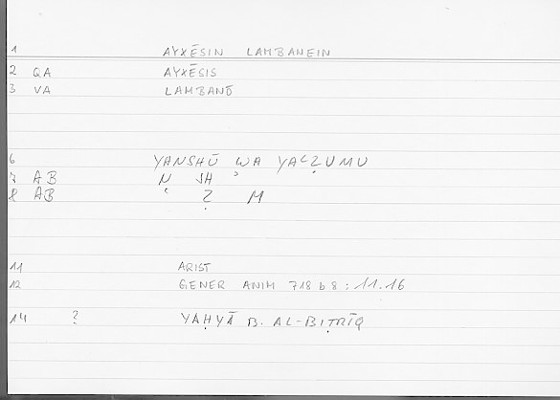 1 AYXĒSIN LAMBANEIN
2 QA AYXĒSIS
3 VA LAMBANŌ
6 YANSHŪ WA YAʿẒUMU
7 AB N SH ʾ
8 AB ʿ Ẓ M
11 ARIST
12 GENER ANIM 718 b 8 : 11.16
14 ? YAḤYĀ B. AL-BIṬRĪQ